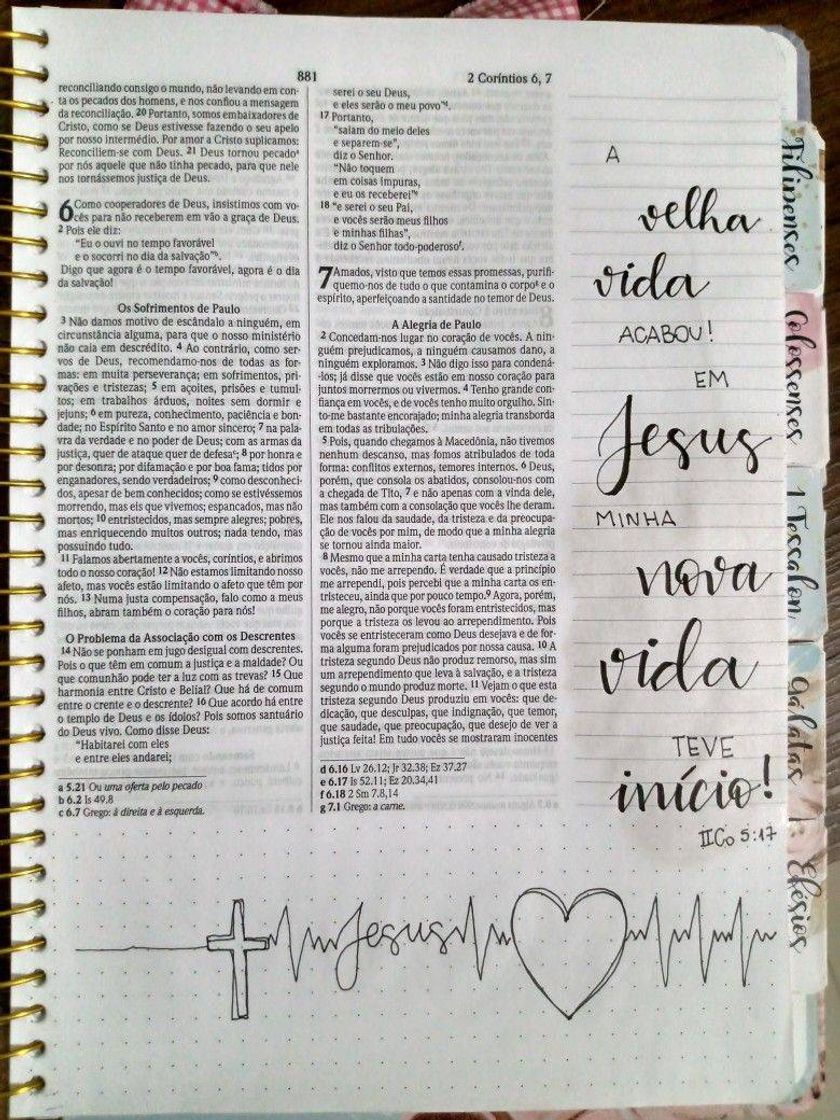 881
2 Coríntios 6, 7
reconciliando consigo o mundo, não levando em con-
ta os pecados dos homens, e nos confiou a mensagem
da reconciliação. 20 Portanto, somos embaixadores de
Cristo, como se Deus estivesse fazendo o seu apelo
por nosso intermédio. Por amor a Cristo suplicamos:
Reconciliem-se com Deus. 21 Deus tornou pecadoª
por nós aquele que não tinha pecado, para que nele
nos tornássemos justiça de Deus.
6 Como cooperadores de Deus, insistimos com vo-
cês para não receberem em vão a graça de Deus.
2 Pois ele diz:
"Eu o ouvi no tempo favorável
e o socorri no dia da salvação"ᵇ.
Digo que agora é o tempo favorável, agora é o dia
da salvação!
Os Sofrimentos de Paulo
3 Não damos motivo de escândalo a ninguém, em
circunstância alguma, para que o nosso ministério
não caia em descrédito. 4 Ao contrário, como ser-
vos de Deus, recomendamo-nos de todas as for-
mas: em muita perseverança; em sofrimentos, pri-
vações e tristezas; 5 em açoites, prisões e tumul-
tos; em trabalhos árduos, noites sem dormir e
jejuns; 6 em pureza, conhecimento, paciência e bon-
dade; no Espírito Santo e no amor sincero; 7 na pala-
vra da verdade e no poder de Deus; com as armas da
justiça, quer de ataque quer de defesaᶜ; 8 por honra e
por desonra; por difamação e por boa fama; tidos por
enganadores, sendo verdadeiros; 9 como desconheci-
dos, apesar de bem conhecidos; como se estivéssemos
morrendo, mas eis que vivemos; espancados, mas não
mortos; 10 entristecidos, mas sempre alegres; pobres,
mas enriquecendo muitos outros; nada tendo, mas
possuindo tudo.
11 Falamos abertamente a vocês, coríntios, e abrimos
todo o nosso coração! 12 Não estamos limitando nosso
afeto, mas vocês estão limitando o afeto que têm por
nós. 13 Numa justa compensação, falo como a meus
filhos, abram também o coração para nós!
O Problema da Associação com os Descrentes
14 Não se ponham em jugo desigual com descrentes.
Pois o que têm em comum a justiça e a maldade? Ou
que comunhão pode ter a luz com as trevas? 15 Que
harmonia entre Cristo e Belial? Que há de comum
entre o crente e o descrente? 16 Que acordo há entre
o templo de Deus e os ídolos? Pois somos santuário
do Deus vivo. Como disse Deus:
"Habitarei com eles
e entre eles andarei;
a 5.21 Ou uma oferta pelo pecado
b 6.2 Is 49.8
c 6.7 Grego: à direita e à esquerda.
serei o seu Deus,
e eles serão o meu povo"ᵈ.
17 Portanto,
"saiam do meio deles
e separem-se",
diz o Senhor.
"Não toquem
em coisas impuras,
e eu os receberei"ᵉ
18 "e serei o seu Pai,
e vocês serão meus filhos
e minhas filhas",
diz o Senhor todo-poderosoᶠ.
7 Amados, visto que temos essas promessas, purifi-
quemo-nos de tudo o que contamina o corpoᵍ e o
espírito, aperfeiçoando a santidade no temor de Deus.
A Alegria de Paulo
2 Concedam-nos lugar no coração de vocês. A nin-
guém prejudicamos, a ninguém causamos dano, a
ninguém exploramos. 3 Não digo isso para condená-
-los; já disse que vocês estão em nosso coração para
juntos morrermos ou vivermos. 4 Tenho grande con-
fiança em vocês, e de vocês tenho muito orgulho. Sin-
to-me bastante encorajado; minha alegria transborda
em todas as tribulações.
5 Pois, quando chegamos à Macedônia, não tivemos
nenhum descanso, mas fomos atribulados de toda
forma: conflitos externos, temores internos. 6 Deus,
porém, que consola os abatidos, consolou-nos com
a chegada de Tito, 7 e não apenas com a vinda dele,
mas também com a consolação que vocês lhe deram.
Ele nos falou da saudade, da tristeza e da preocupa-
ção de vocês por mim, de modo que a minha alegria
se tornou ainda maior.
8 Mesmo que a minha carta tenha causado tristeza a
vocês, não me arrependo. É verdade que a princípio
me arrependi, pois percebi que a minha carta os en-
tristeceu, ainda que por pouco tempo. 9 Agora, porém,
me alegro, não porque vocês foram entristecidos, mas
porque a tristeza os levou ao arrependimento. Pois
vocês se entristeceram como Deus desejava e de for-
ma alguma foram prejudicados por nossa causa. 10 A
tristeza segundo Deus não produz remorso, mas sim
um arrependimento que leva à salvação, e a tristeza
segundo o mundo produz morte. 11 Vejam o que esta
tristeza segundo Deus produziu em vocês: que de-
dicação, que desculpas, que indignação, que temor,
que saudade, que preocupação, que desejo de ver a
justiça feita! Em tudo vocês se mostraram inocentes
d 6.16 Lv 26.12; Jr 32.38; Ez 37.27
e 6.17 Is 52.11; Ez 20.34,41
f 6.18 2 Sm 7.8,14
g 7.1 Grego: a carne.
A
velha
vida
ACABOU!
EM
Jesus
MINHA
nova
vida
TEVE
início!
IICo 5:17
Jesus
Filipenses
Colossenses
1 Tessalon.
Gálatas
Efésios